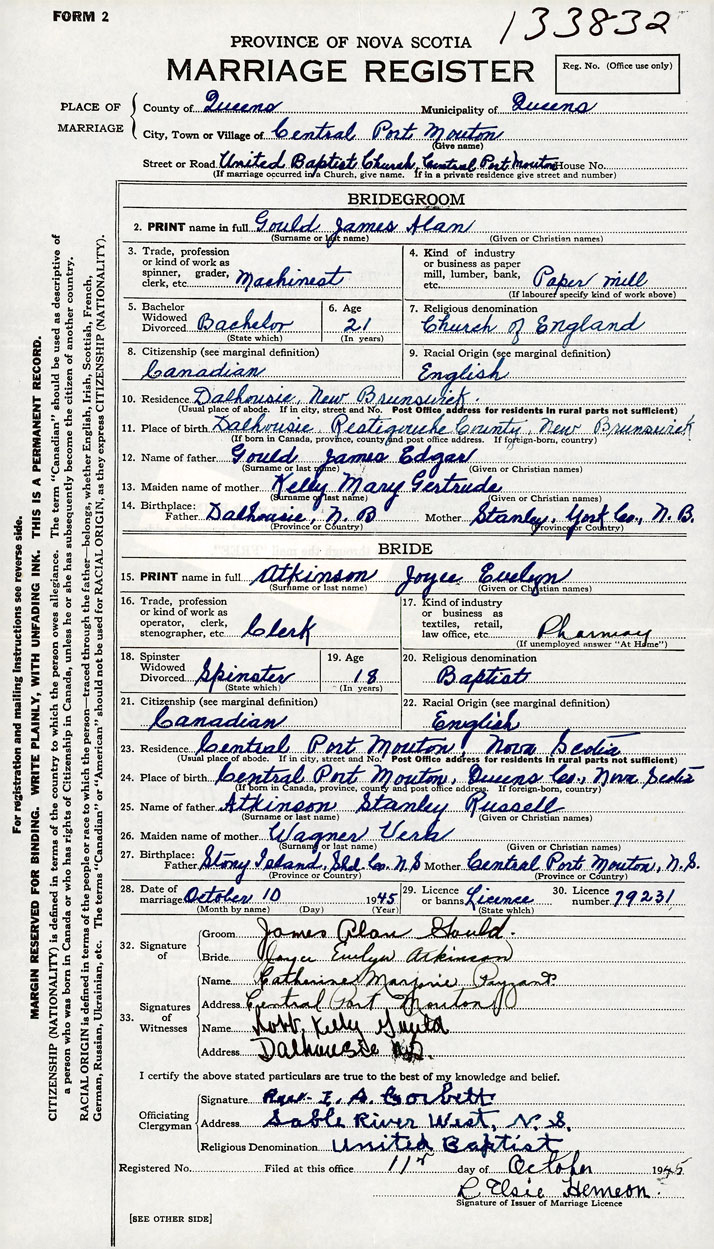 FORM 2
133832
PROVINCE OF NOVA SCOTIA
MARRIAGE REGISTER
Reg. No. (Office use only)
PLACE OF MARRIAGE
County of Queens Municipality of Queens
City, Town or Village of Central Port Mouton
(Give name)
Street or Road United Baptist Church, Central Port Mouton House No.
(If marriage occurred in a Church, give name. If in a private residence give street and number)
BRIDEGROOM
2. PRINT name in full Gould James Alan
(Surname or last name) (Given or Christian names)
3. Trade, profession or kind of work as spinner, grader, clerk, etc. Machinest
4. Kind of industry or business as paper mill, lumber, bank, etc. Paper mill
(If labourer specify kind of work above)
5. Bachelor Widowed Divorced Bachelor
(State which)
6. Age 21
(In years)
7. Religious denomination
Church of England
8. Citizenship (see marginal definition)
Canadian
9. Racial Origin (see marginal definition)
English
10. Residence Dalhousie, New Brunswick.
(Usual place of abode. If in city, street and No. Post Office address for residents in rural parts not sufficient)
11. Place of birth Dalhousie, Restigouche County, New Brunswick
(If born in Canada, province, county and post office address. If foreign-born, country)
12. Name of father Gould James Edgar
(Surname or last name) (Given or Christian names)
13. Maiden name of mother Kelly Mary Gertrude
(Surname or last name) (Given or Christian names)
14. Birthplace: Father Dalhousie, N. B Mother Stanley, York Co., N. B.
(Province or Country) (Province or Country)
BRIDE
15. PRINT name in full Atkinson Joyce Evelyn
(Surname or last name) (Given or Christian names)
16. Trade, profession or kind of work as operator, clerk, stenographer, etc. Clerk
17. Kind of industry or business as textiles, retail, law office, etc. Pharmacy
(If unemployed answer "At Home")
18. Spinster Widowed Divorced Spinster
(State which)
19. Age 18
(In years)
20. Religious denomination
Baptist
21. Citizenship (see marginal definition)
Canadian
22. Racial Origin (see marginal definition)
English
23. Residence Central Port Mouton, Nova Scotia
(Usual place of abode. If in city, street and No. Post Office address for residents in rural parts not sufficient)
24. Place of birth Central Port Mouton, Queens Co., Nova Scotia
(If born in Canada, province, county and post office address. If foreign-born, country)
25. Name of father Atkinson Stanley Russell
(Surname or last name) (Given or Christian names)
26. Maiden name of mother Wagner Vera
(Surname or last name) (Given or Christian names)
27. Birthplace: Father Stony Island, Shel. Co. N.S Mother Central Port Mouton, N.S.
(Province or Country) (Province or Country)
28. Date of marriage October 10 1945
(Month by name) (Day) (Year)
29. Licence or banns Licence
(State which)
30. Licence number 79231
32. Signature of
Groom James Alan Gould.
Bride Joyce Evelyn Atkinson
33. Signatures of Witnesses
Name Catherine Marjorie Payzant
Address Central Port Mouton
Name Robt. Kelly Gould
Address Dalhousie N.B.
I certify the above stated particulars are true to the best of my knowledge and belief.
Officiating Clergyman
Signature Rev. E. A. Corbett
Address Sable River West, N. S.
Religious Denomination United Baptist
Registered No. Filed at this office 11 day of October 1945
L Elsie Hemeon.
Signature of Issuer of Marriage Licence
[SEE OTHER SIDE]
For registration and mailing instructions see reverse side.
MARGIN RESERVED FOR BINDING. WRITE PLAINLY, WITH UNFADING INK. THIS IS A PERMANENT RECORD.
CITIZENSHIP (NATIONALITY) is defined in terms of the country to which the person owes allegiance. The term "Canadian" should be used as descriptive of
a person who was born in Canada or who has rights of Citizenship in Canada, unless he or she has subsequently become the citizen of another country.
RACIAL ORIGIN is defined in terms of the people or race to which the person—traced through the father—belongs, whether English, Irish, Scottish, French,
German, Russian, Ukrainian, etc. The terms "Canadian" or "American" should not be used for RACIAL ORIGIN, as they express CITIZENSHIP (NATIONALITY).